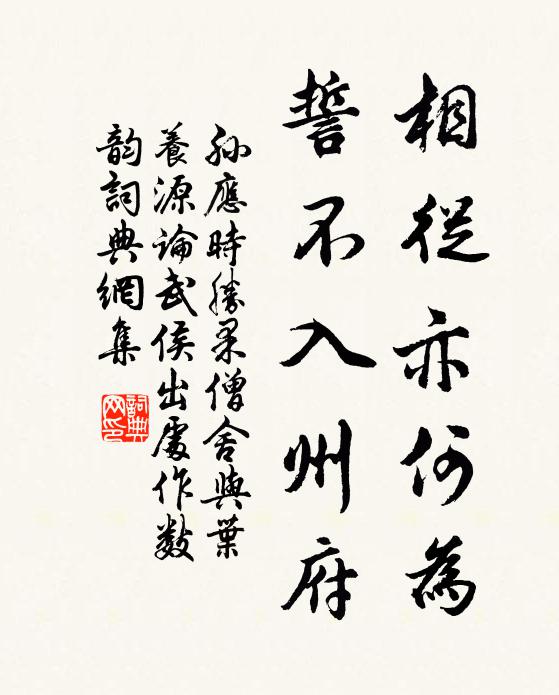 相從亦何為
誓不入州府
孙應時勝果僧舍與葉
養源論武侯出處作数
韵詞典網集
詞典
网印